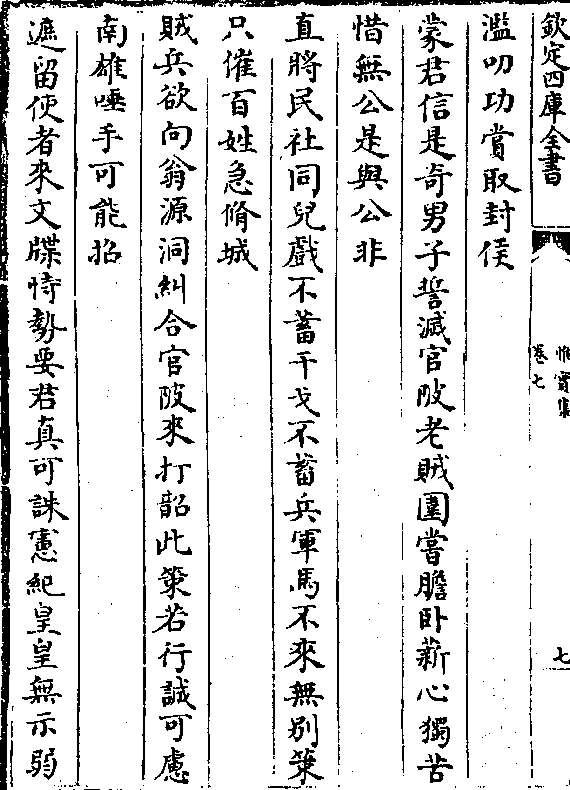 欽定四庫全書
惟實集
卷七
七
濫叨功賞取封侯
蒙君信是奇男子誓滅官陂老賊圍嘗膽卧薪心獨苦
惜無公是與公非
直將民社同兒戲不蓄干戈不蓄兵軍馬不來無别䇿
只催百姓急脩城
賊兵欲向翁源洞糾合官陂來打韶此䇿若行誠可慮
南雄唾手可能招
遮留使者來文牒恃勢要君真可誅憲紀皇皇無示弱